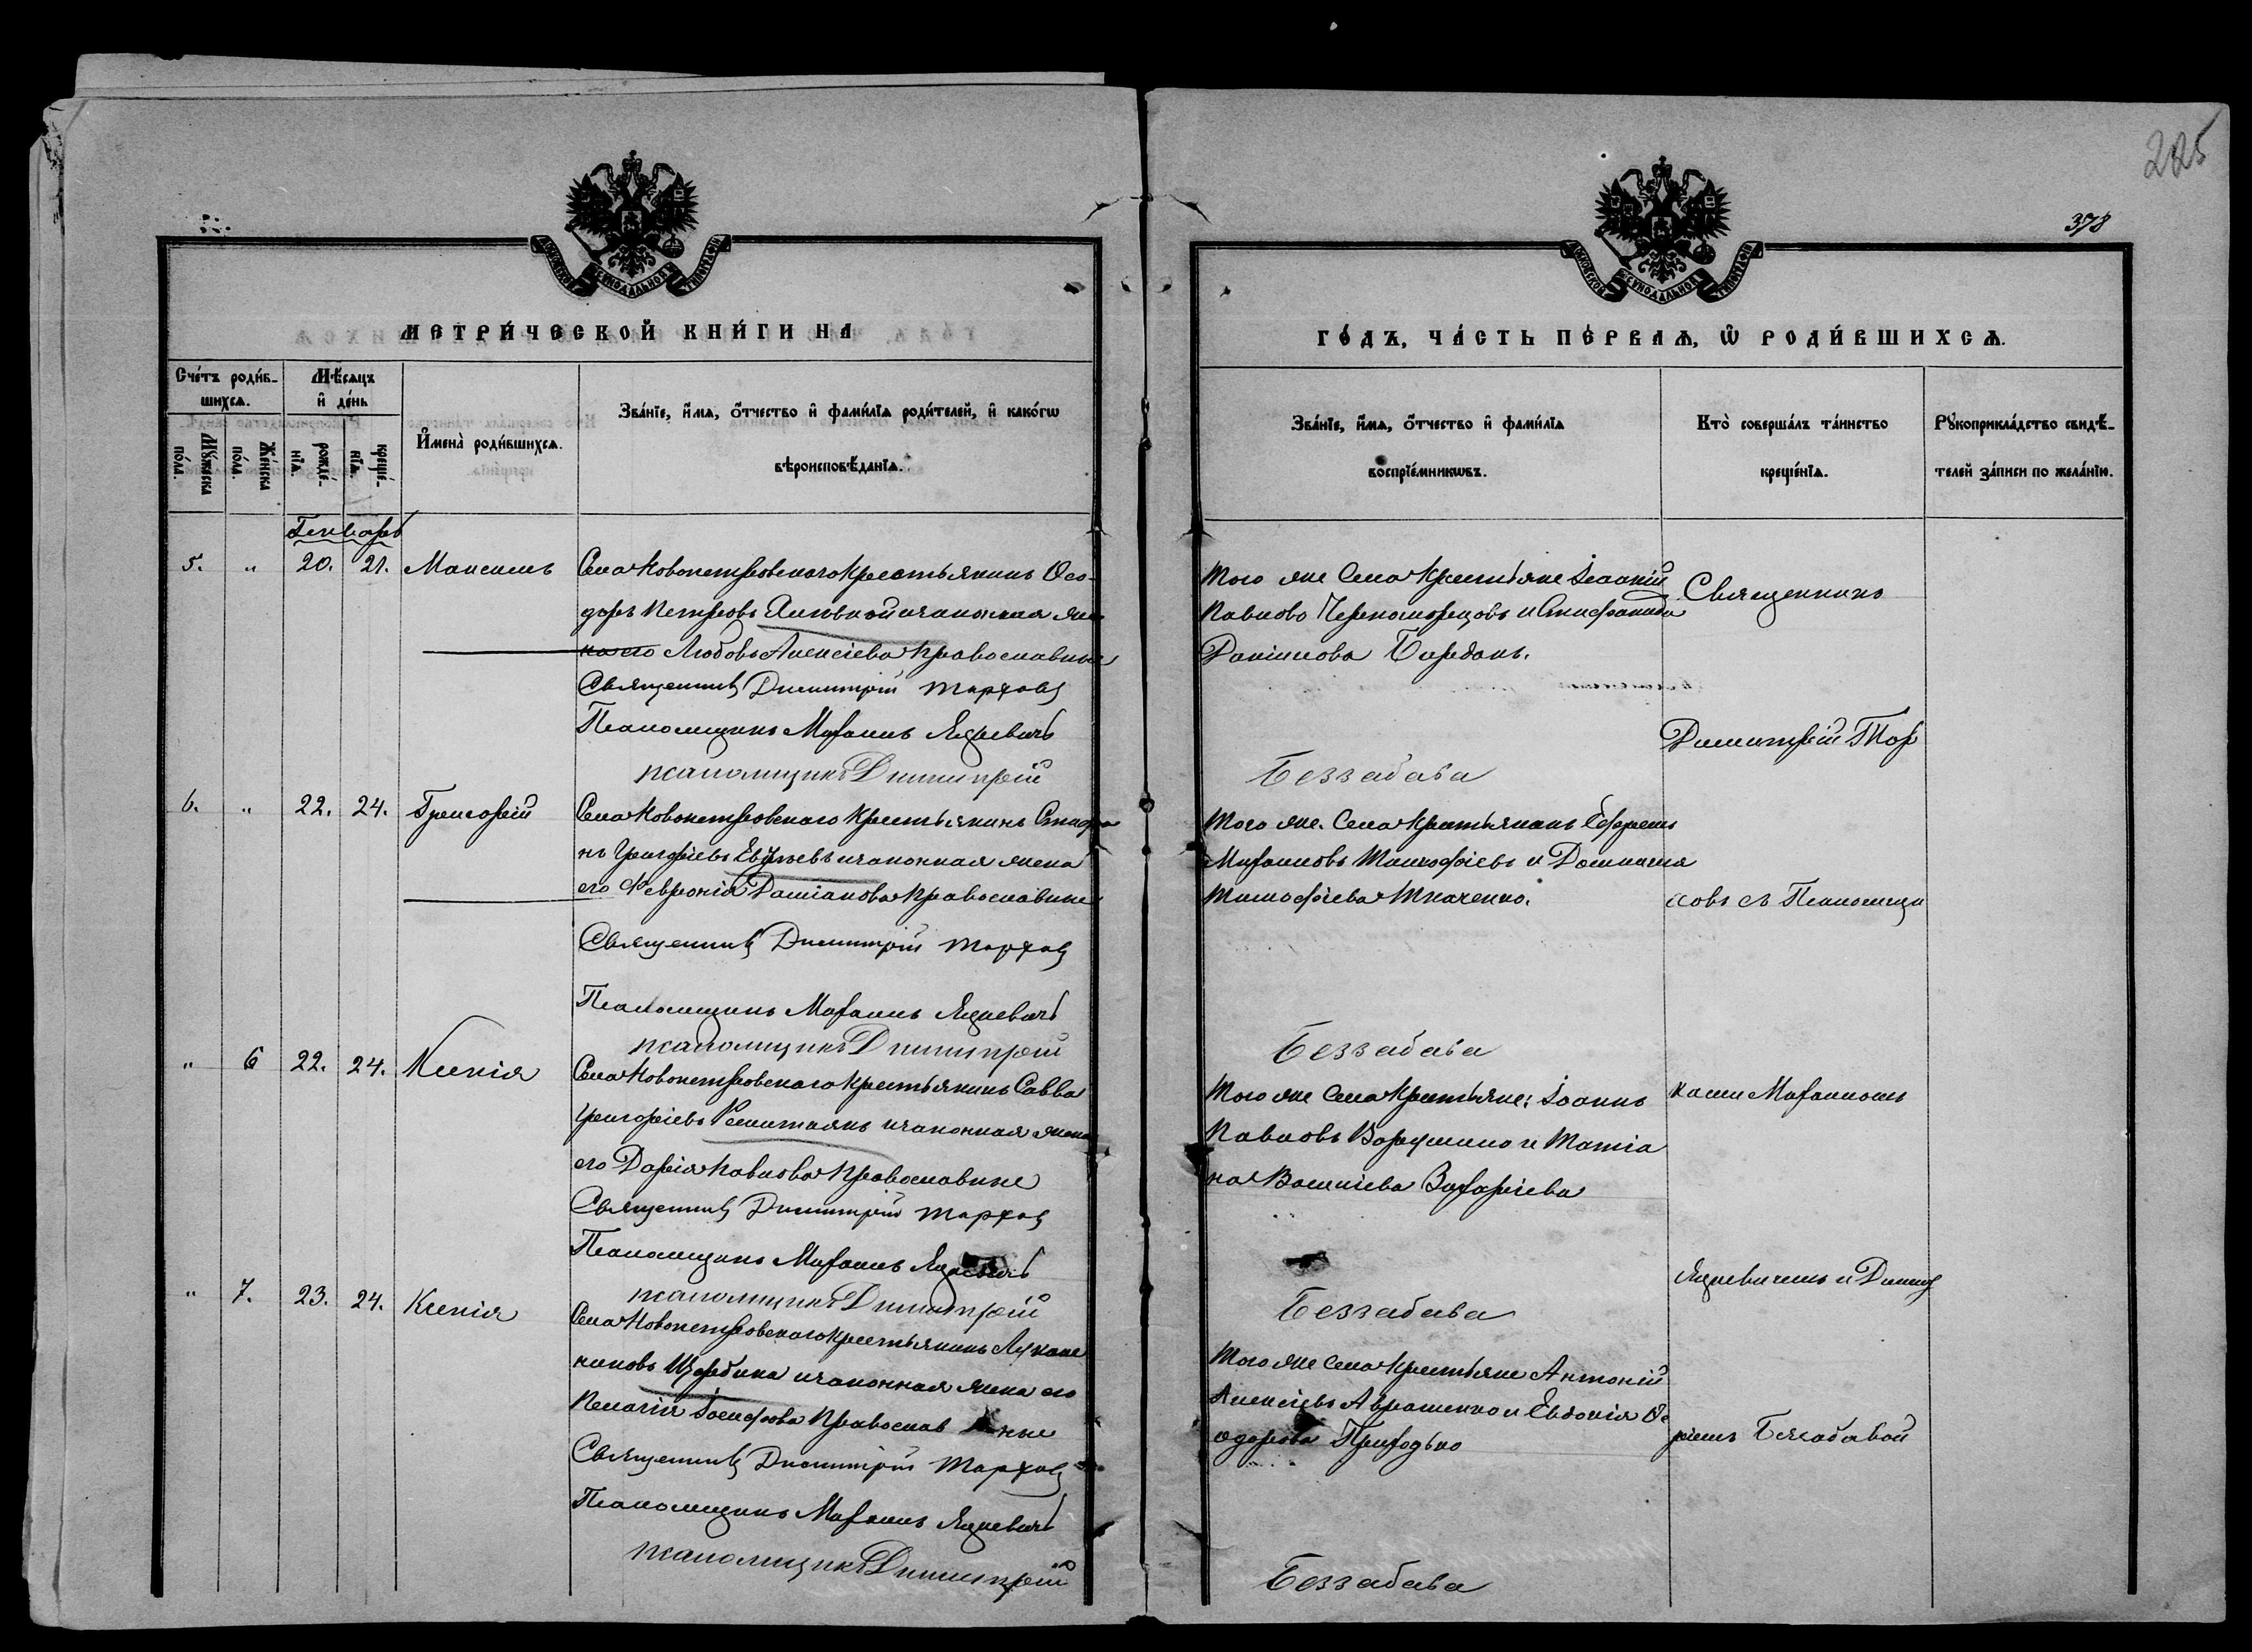 225
378
МОСКОВСКОЙ СѴНОДАЛЬНОЙ ТИПОГРАФІИ
МОСКОВСКОЙ СѴНОДАЛЬНОЙ ТИПОГРАФІИ
МЕТРИ́ЧЕСКОЙ КНИ́ГИ НА
ГО́ДЪ, ЧА́СТЬ ПЕ́РВАѦ, Ѿ РОДИ́ВШИХСѦ.
Сче́тъ роди́в-
шихсѧ.
Мѣ́сѧцъ
и҆ де́нь
Мꙋ́жеска
по́ла.
Же́нска
по́ла.
рожде́-
нїѧ.
креще́-
нїѧ.
И҆мена̀ роди́вшихсѧ.
Зва́нїе, и҆́мѧ, ѻ҆́тчество и҆ фами́лїѧ роди́телей, и҆ како́гѡ
вѣроисповѣ́данїѧ.
Зва́нїе, и҆́мѧ, ѻ҆́тчество и҆ фами́лїѧ
воспрїе́мникѡвъ.
Кто̀ соверша́лъ та́инство
креще́нїѧ.
Рꙋкоприкла́дство свидѣ́-
телей за́писи по жела́нїю.
Генварь
5. " 20. 21. Максимъ
Села Новопетровскаго крестьянинъ Ѳео-
доръ Петровъ и законная же-
на его Любовь Алексіева Православные
Священникъ Димитрій Тарховъ
Псаломщикъ Михаилъ Яцкевичъ
псаломщикъ Димитрій
Того же Села Крестьяне
Павловъ Черноморцовъ и Стефанида
Даніилова
Беззабава
Священникъ
Димитрій Тар
6. " 22. 24. Григорій
Села Новопетровскаго Крестьянинъ Стефа
нъ Григоріевъ и законная жена
его Феvронія Даміанова Православные
Священникъ Димитрій Тарховъ
Псаломщикъ Михаилъ Яцкевичъ
псаломщикъ Димитрій
Того же Села Крестьянинъ Ефремъ
Михаиловъ Тимофіевъ и Домникія
Тимофіева Ткаченко.
Беззабава
ховъ съ Псаломщи
" 6 22. 24. Ксенія
Села Новопетровскаго крестьянинъ Савва
Григоріевъ и законная жена
его Дарія Павлова Православные
Священникъ Димитрій Тарховъ
Псаломщикъ Михаилъ Яцкевичъ
псаломщикъ Димитрій
Того же Села Крестьяне: Іоаннъ
Павловъ и Татіа
на Василіева Захаріева
Беззабава
ками Михаиломъ
Яцкевичемъ и Димит
" 7. 23. 24. Ксенія
Села Новопетровскаго крестьянинъ
Щербина и законная жена его
Пелагія Іосифова Православные
Священникъ Димитрій Тарховъ
Псаломщикъ Михаилъ Яцкевичъ
псаломщикъ Димитрій
Того же Села Крестьяне Антоній
Алексіевъ Авраменко и Евдокія Ѳе
одорова Приходько
Беззабава
ріемъ Беззабавой